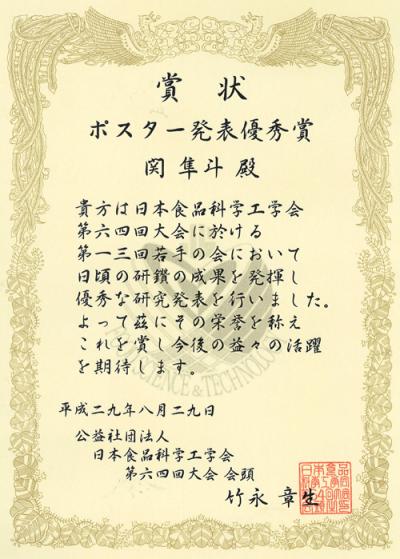 賞状
ポスター発表優秀賞
関隼斗 殿
貴方は日本食品科学工学会
第六四回大会に於ける
第一三回若手の会において
日頃の研鑽の成果を発揮し
優秀な研究発表を行いました。
よって茲にその栄誉を称え
これを賞し今後の益々の活躍
を期待します。
平成二九年八月二九日
公益社団法人
日本食品科学工学会
第六四回大会 会頭
竹永 章生
SCIENCE & TECHNOLOGY